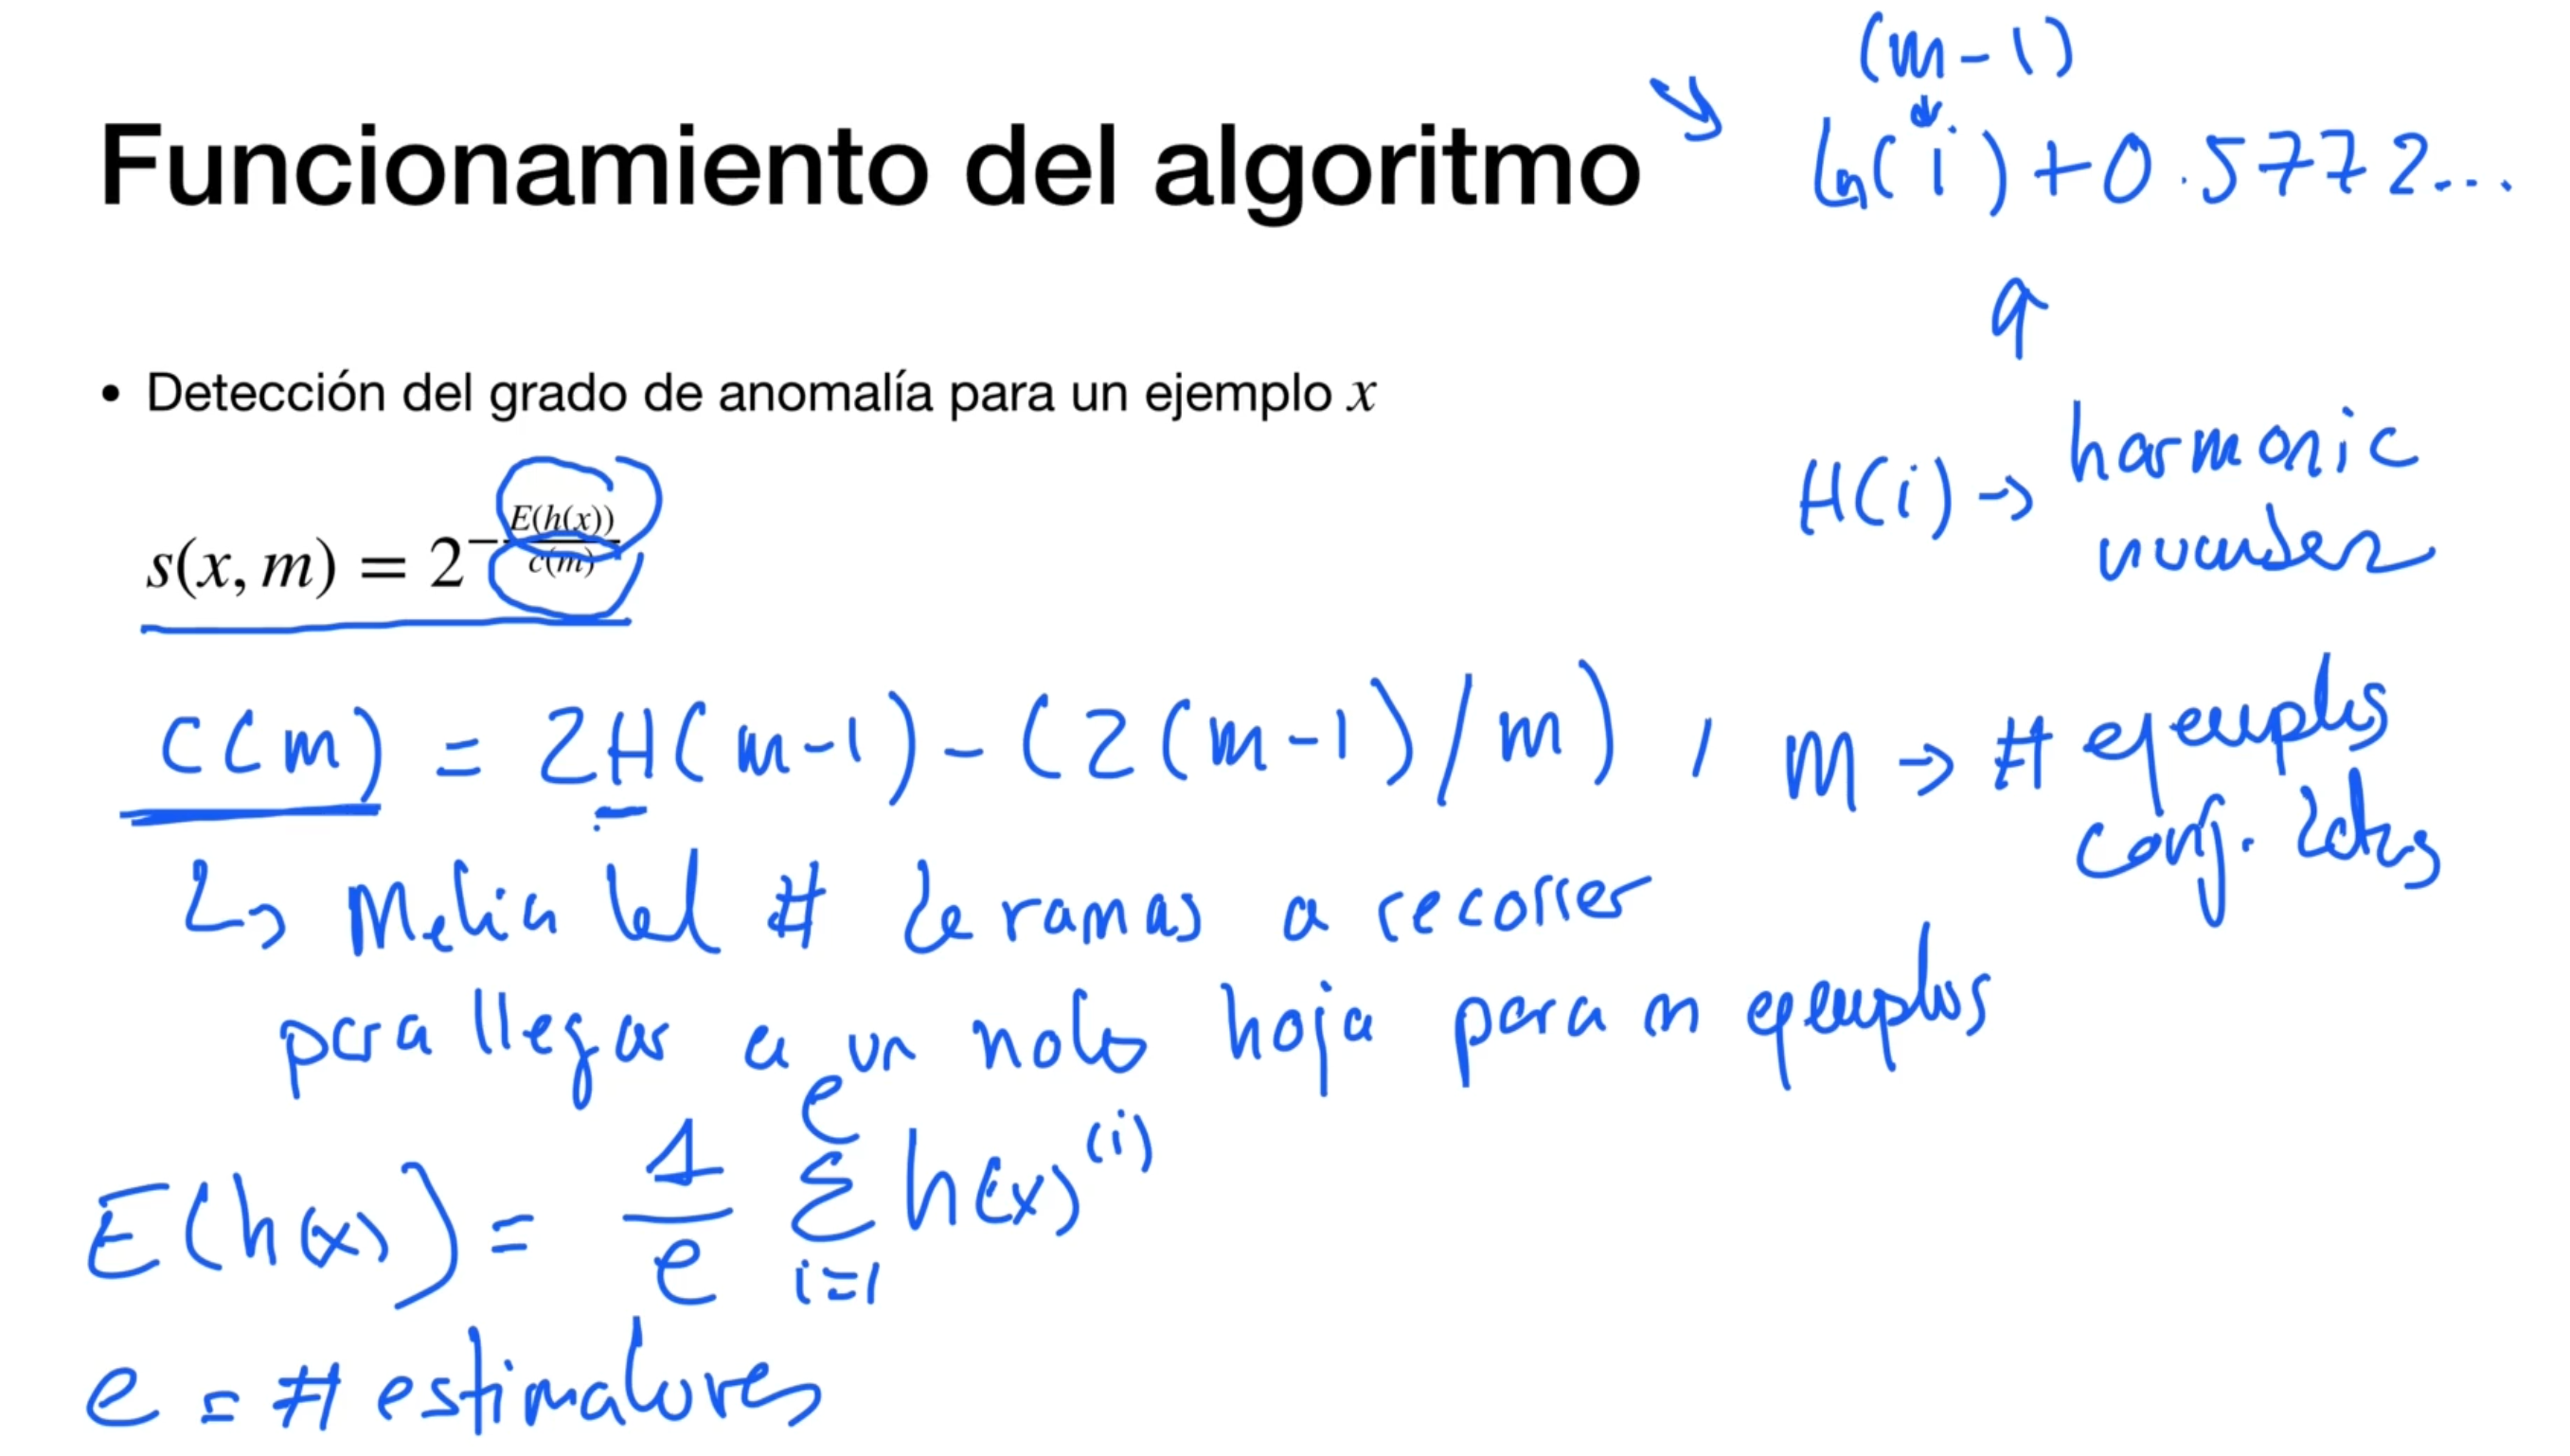 (m-1)
Funcionamiento del algoritmo
ln(i)+0.5772...
• Detección del grado de anomalía para un ejemplo x
H(i) → harmonic
number
s(x, m) = 2^{-\frac{E(h(x))}{c(m)}}
C(m) = 2H(m-1) - (2(m-1)/m) , m → # ejemplos
conj. datos
↳ Media del # de ramas a recorrer
para llegar a un nodo hoja para m ejemplos
E(h(x)) = \frac{1}{e} \sum_{i=1}^{e} h(x)^{(i)}
e = # estimadores